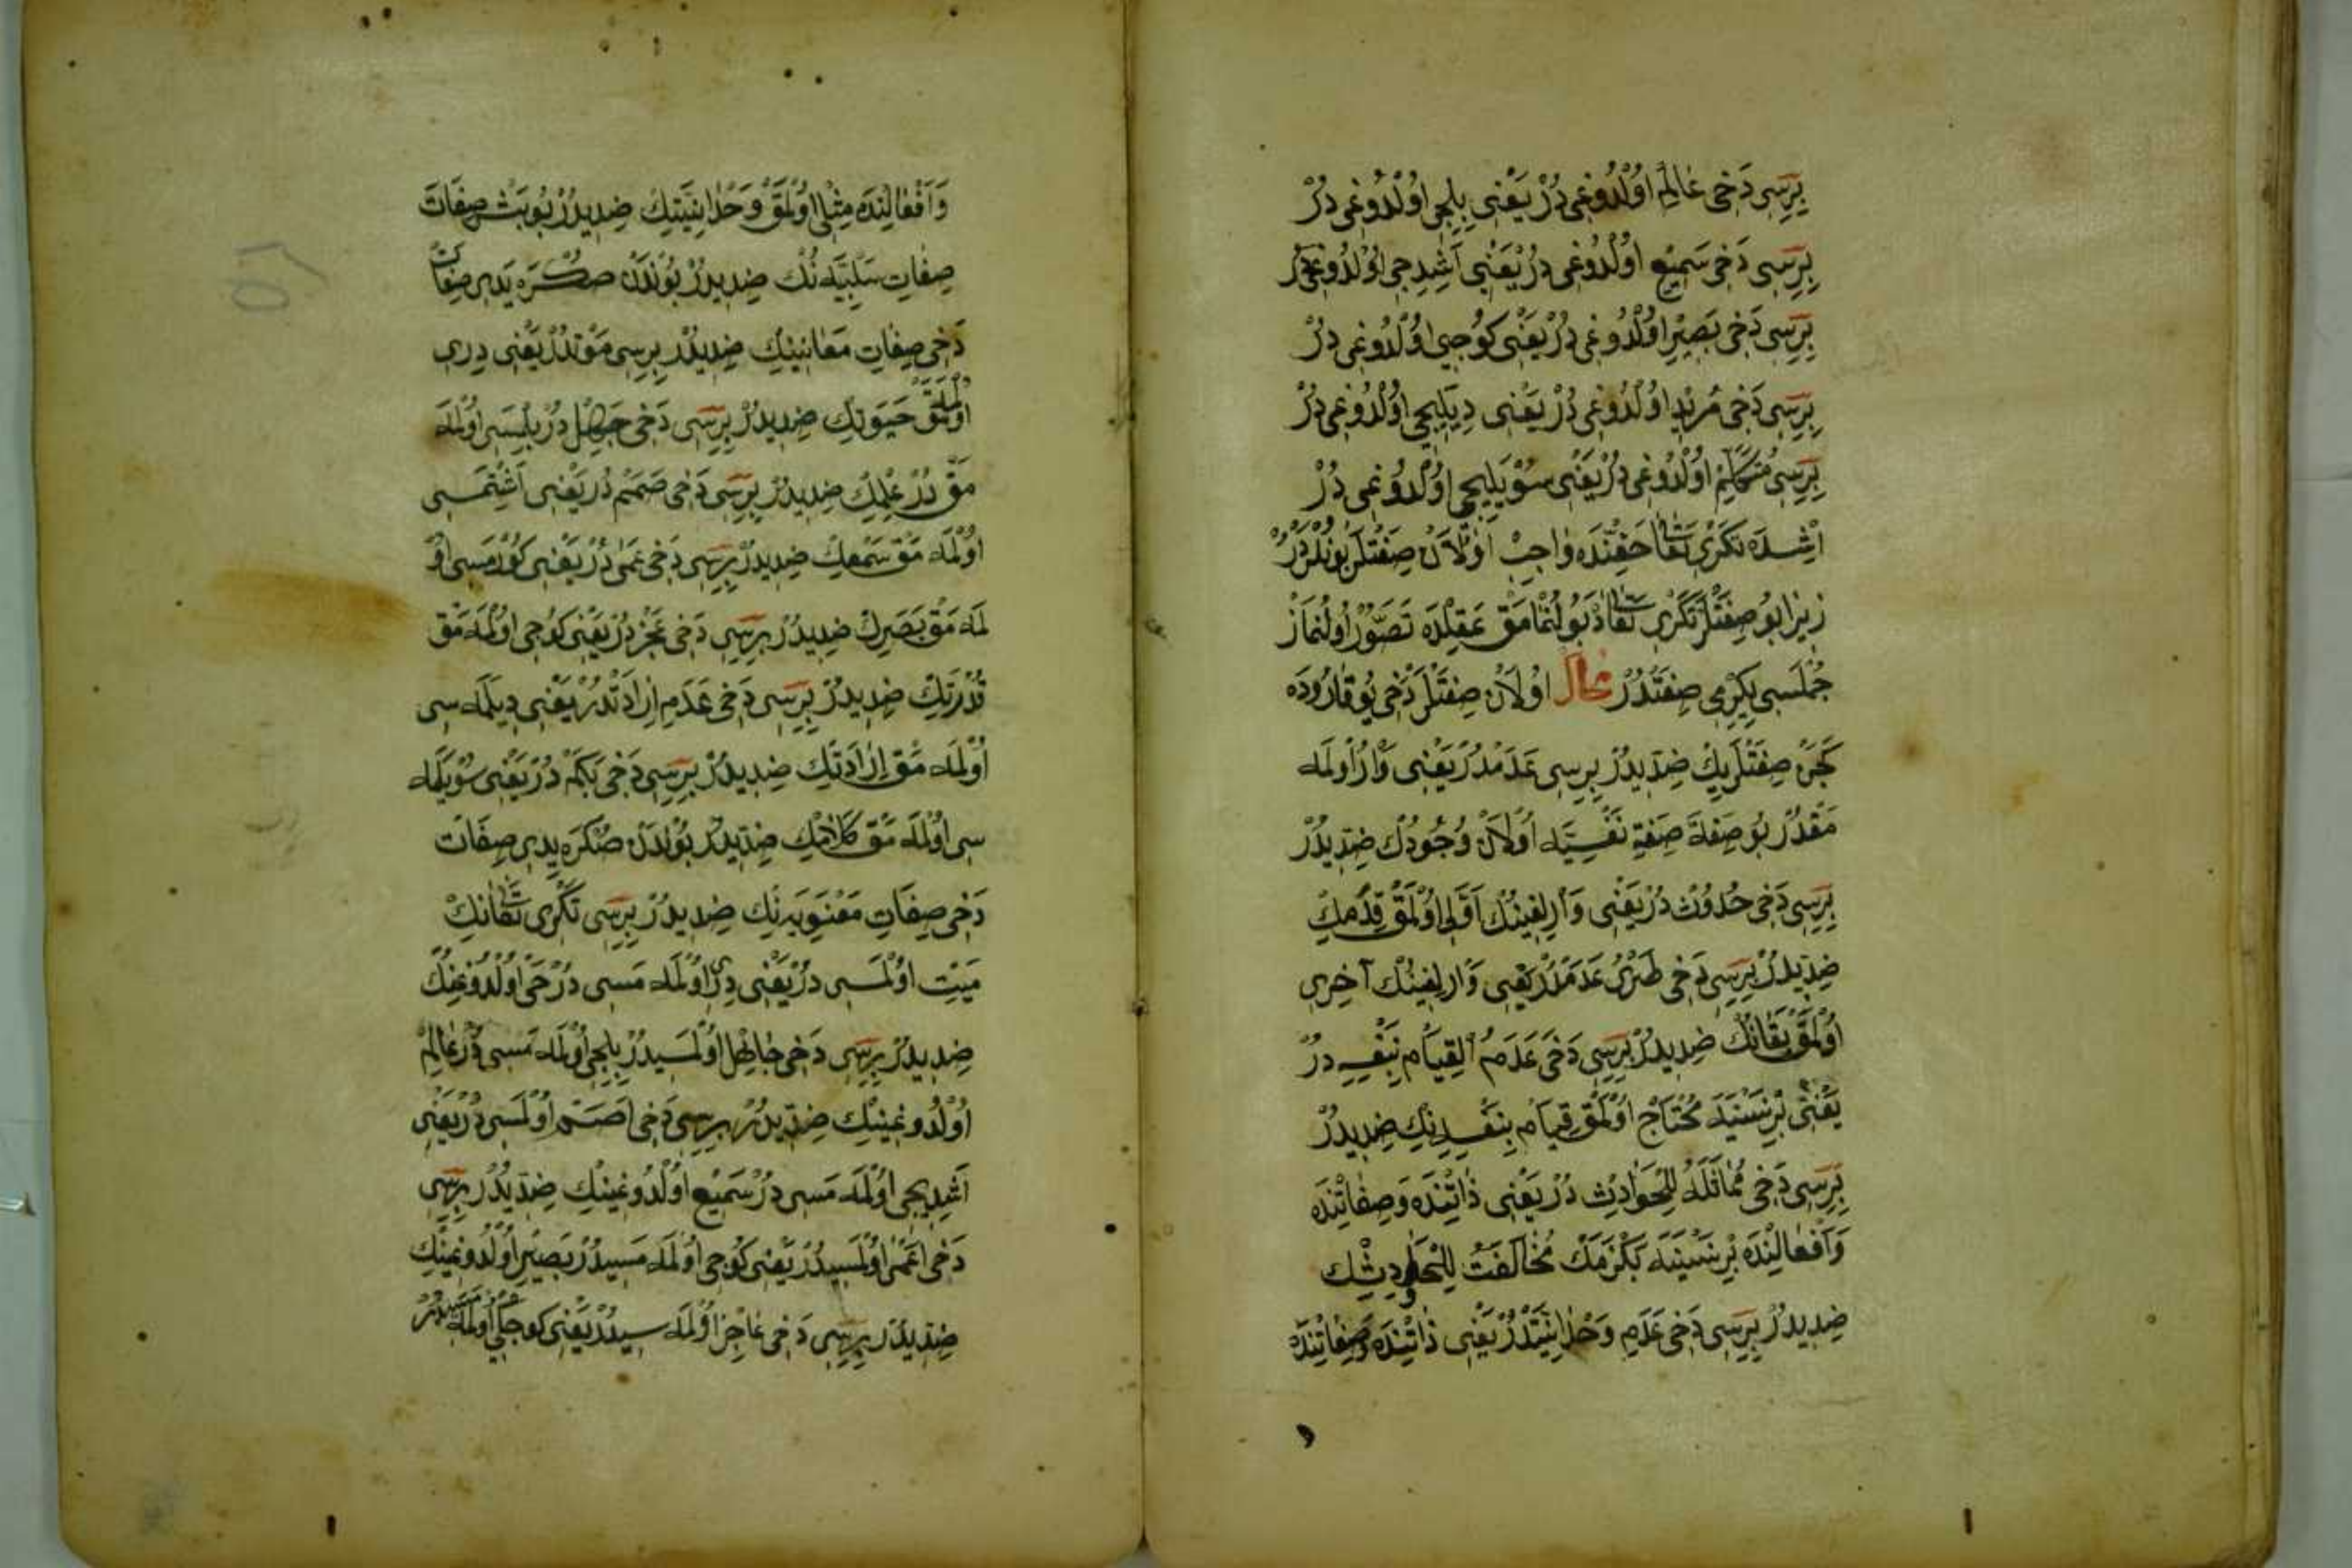 بِرِسِى دَخِى عَالِمْ اوُلْدُوغِى دُرْ يَعْنِى بِلِجِى اوُلْدُوغِى دُرْ
بِرِسِى دَخِى سَمِيْع اوُلْدُوغِى دُرْ يَعْنِى اَشِدِجِى اوُلْدُوغِى دُرْ
بِرِسِى دَخِى بَصِيْر اوُلْدُوغِى دُرْ يَعْنِى كوُرجِى اوُلْدُوغِى دُرْ
بِرِسِى دَخِى مُرِيْد اوُلْدُوغِى دُرْ يَعْنِى دِيلَيجِى اوُلْدُوغِى دُرْ
بِرِسِى مُتَكَلِّمْ اوُلْدُوغِى دُرْ يَعْنِى سوُيلَيِجِى اوُلْدُوغِى دُرْ
اُشِدَه تَكْرِى تَعَالٰى حَقِنْدَه وَاجِبْ اوُلَانْ صِفَتْلَرْ بُونْلَرْدُرْ
زِيْرَا بُو صِفَتْلَرْ تَكْرِى تَعَالٰى دَه بُولُنْمَامَقْ عَقِلْدَه تَصَوُّرْ اوُلُنْمَازْ
جُمْلَسِى يِكِرْمِى صِفَتْدُرْ مُحَالْ اوُلَانْ صِفَتْلَرْ دَخِى يُوقَارُودَه
كَچَنْ صِفَتْلَرِيكْ ضِدِّيدُرْ بِرِسِى عَدَمْدُرْ يَعْنِى وَارْ اوُلْمَه
مَقْدُرْ بُو صِفَة صِفَةِ نَفْسِيَّه اوُلَانْ وُجُودُكْ ضِدِّيدُرْ
بِرِسِى دَخِى حُدُوْثْ دُرْ يَعْنِى وَارْلِغِينُكْ اَوَّلِى اوُلْمَقْ قِدَمِكْ
ضِدِّيدُرْ بِرِسِى دَخِى طَرَئُ عَدَمْدُرْ يَعْنِى وَارْلِغِينُكْ آخِرِى
اوُلْمَقْ بَقَانُكْ ضِدِّيدُرْ بِرِسِى دَخِى عَدَمُ الْقِيَامِ بِنَفْسِهِ دُرْ
يَعْنِى بِرْ نَسْنَيَه مُحْتَاجْ اوُلْمَقْ قِيَامْ بِنَفْسِهِ نِكْ ضِدِّيدُرْ
بِرِسِى دَخِى مُمَاثَلَةُ لِلْحَوَادِثْ دُرْ يَعْنِى ذَاتِنْدَه وَصِفَاتِنْدَه
وَاَفْعَالِنْدَه بِرْ نَسْنَيَه بَكْزَمَكْ مُخَالَفَتُ لِلْحَوَادِثِكْ
ضِدِّيدُرْ بِرِسِى دَخِى عَدَمِ وَحْدَانِيَّتْدُرْ يَعْنِى ذَاتِنْدَه وَصِفَاتِنْدَه
و
وَاَفْعَالِنْدَه مِثْلِى اوُلْمَقْ وَحْدَانِيَّتِكْ ضِدِّيدُرْ بُو بَشْ صِفَاتْ
صِفَاتِ سَلْبِيَّه نُكْ ضِدِّيدُرْ بُوْنْدَنْ صُكْرَه يَدِى صِفَاتْ
دَخِى صِفَاتِ مَعَانِينِكْ ضِدِّيدُرْ بِرِسِى مَوْتْدُرْ يَعْنِى دِرِى
اوُلْمَامَقْ حَيَوتِكْ ضِدِّيدُرْ بِرِسِى دَخِى جَهِلْ دُرْ بِلْمَسِى اوُلْمَه
مَقْ دُرْ عِلْمِكْ ضِدِّيدُرْ بِرِسِى دَخِى صَمَمْ دُرْ يَعْنِى اَشِتْمَسِى
اوُلْمَه مَقْ سَمْعِكْ ضِدِّيدُرْ بِرِسِى دَخِى عَمٰى دُرْ يَعْنِى كوُرْمَسِى اوُ
لْمَه مَقْ بَصَرِكْ ضِدِّيدُرْ بِرِسِى دَخِى عَجْزْ دُرْ يَعْنِى كوُجِى اوُلْمَه مَقْ
قُدْرَتِكْ ضِدِّيدُرْ بِرِسِى دَخِى عَدَمِ اِرَادَتْدُرْ يَعْنِى دِيلَمَه سِى
اوُلْمَه مَقْ اِرَادَتِكْ ضِدِّيدُرْ بِرِسِى دَخِى بَكَمْ دُرْ يَعْنِى سوُيلَمَه
سِى اوُلْمَه مَقْ كَلَامِكْ ضِدِّيدُرْ بُونْدَنْ صُكْرَه يَدِى صِفَاتْ
دَخِى صِفَاتِ مَعْنَوِيَه نِكْ ضِدِّيدُرْ بِرِسِى تَكْرِى تَعَالٰى نِكْ
مَيِّتْ اوُلْمَسِى دُرْ يَعْنِى دِرِى اوُلْمَه مَسِى دُرْ حَىْ اوُلْدُوغِنُكْ
ضِدِّيدُرْ بِرِسِى دَخِى جَاهِلْ اوُلْمَسِيدُرْ بِلِجِى اوُلْمَه مَسِى دُرْ عَالِمْ
اوُلْدُوغِينِكْ ضِدِّيدُرْ بِرِسِى دَخِى اَصَمْ اوُلْمَسِى دُرْ يَعْنِى
اَشِدِيجِى اوُلْمَه مَسِى دُرْ سَمِيْع اوُلْدُوغِينِكْ ضِدِّيدُرْ بِرِسِى
دَخِى اَعْمٰى اوُلْمَسِيدُرْ يَعْنِى كوُرجِى اوُلْمَه مَسِيدُرْ بَصِيْر اوُلْدُوغِينِكْ
ضِدِّيدُرْ بِرِسِى دَخِى عَاجِزْ اوُلْمَه سِيدُرْ يَعْنِى كوُجلُى اوُلْمَه مَسِيدُرْ